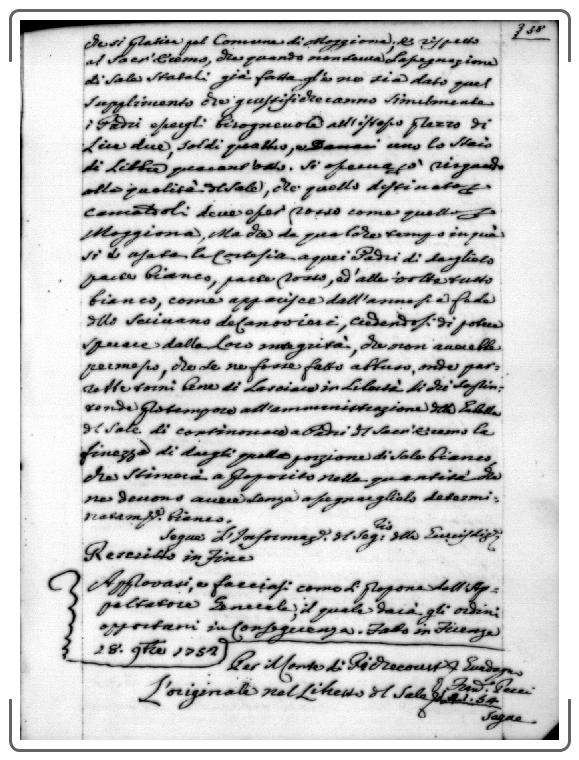 338
che si pratica pel Comune di Moggiona, e rispetto
al Sacr'Eremo, che quando non sia l'assegnazione
di Sale Statali già fatta gl'e ne sia dato quel
supplimento che giustificheranno simulmente
i Padri esser gli bisognevole all'istesso prezzo di
Lire due, soldi quattro, e Danari uno lo Staio
di Libbre quarant'otto. Si osserva riguardo
alla qualità del Sale, che quello destinato
Camaldoli deve esser rosso come quello
Moggiona, Ma che da qualche tempo in quà
si è usata la Cortesia a quei Padri di darglielo
parte bianco, parte rosso, ed alle volte tutto
bianco, come apparisce dall'annessa fede
dello Scrivano de Canovieri, credendosi di poter
sperare dalla loro integrità, che non averebbe
permesso, che se ne fosse fatto abuso, onde par-
rebbe torni bene di Lasciare in Libertà di chi Soprin-
tende pro tempore all'amministrazione della Gabella
del Sale di continovare a Padri del Sacr'Eremo la
finezza di dargli quella porzione di Sale bianco
che stimerà a proposito nella quantità che
ne devono avere senza assegnarglielo determi-
natam.e bianco.
Segue L'Informaz.e del Seg.rio delle
Rescritto in Fine
Approvasi, e facciasi come si propone dall'Ap-
paltatore Generale, il quale darà gli ordini
opportuni in Conseguenza. Fatto in Firenze
28. 9bre 1752
Per il Conte di Richecourt
L'originale nel Libretto del Sale
Segue